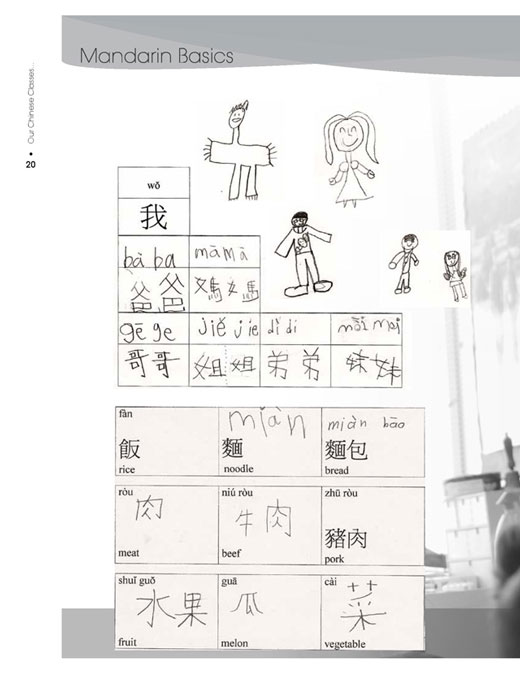 Mandarin Basics
Our Chinese Classes...
20
wǒ
我
bà ba
māmā
爸爸
媽媽
gē ge
jiě jie
dì di
mèi mei
哥哥
姐姐
弟弟
妹妹
fàn
飯
rice
miàn
麵
noodle
miàn bāo
麵包
bread
ròu
肉
meat
niú ròu
牛肉
beef
zhū ròu
豬肉
pork
shuǐ guǒ
水果
fruit
guā
瓜
melon
cài
菜
vegetable